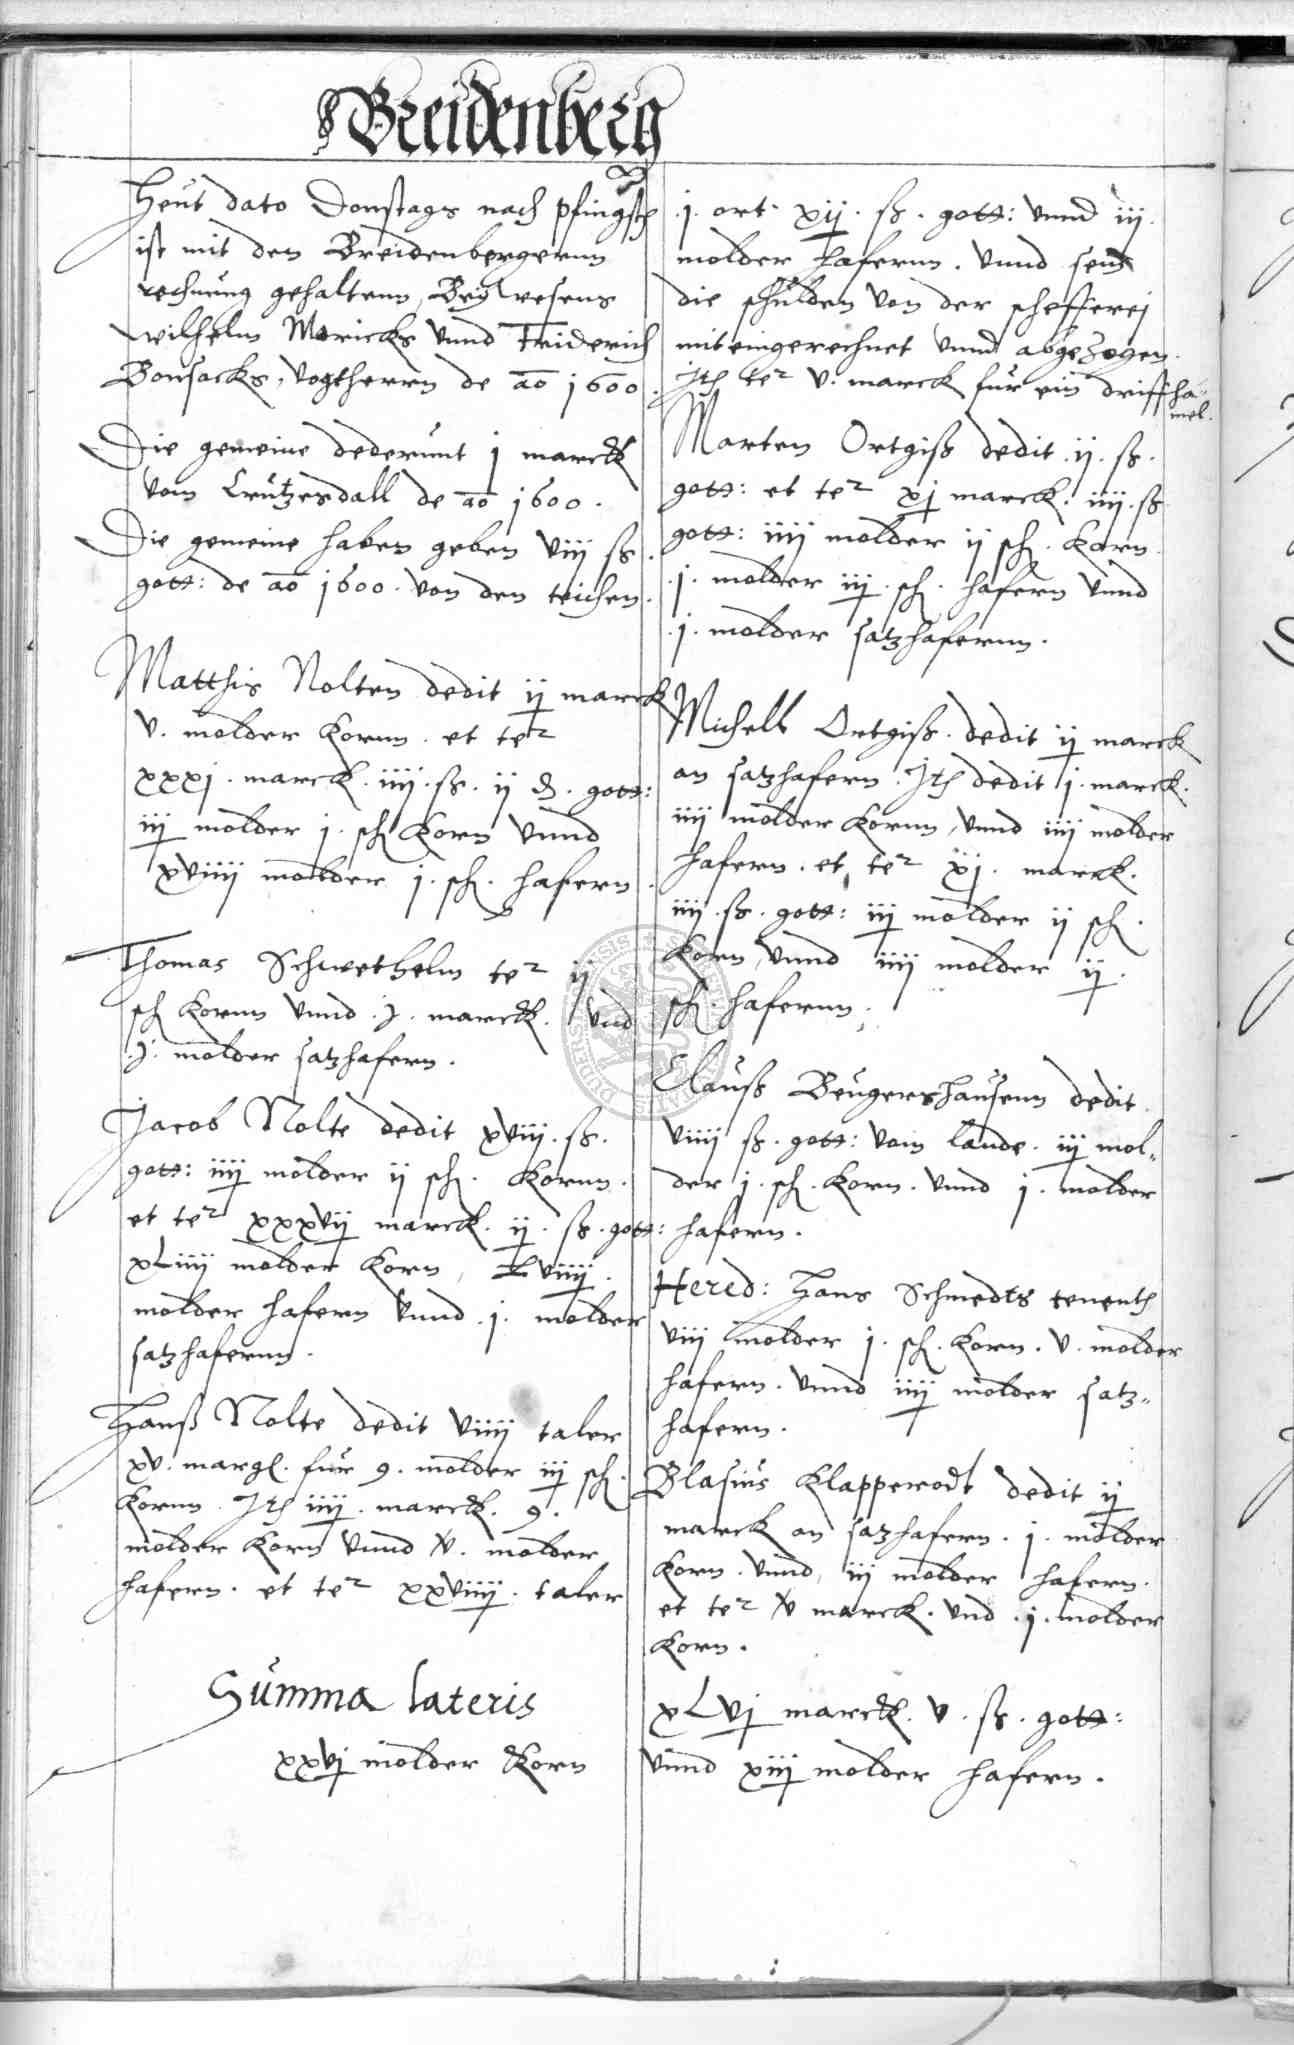 Breidenberg
Heut dato Donstags nach pfingsten
ist mit den Breidenbergernn
rechnung gehaltenn, Beywesens
Wilhelm Moricks vnnd Friderich
Bonsacks, vogtherrn de ao 1600.
Die gemeine dederunt j marck
vom Crutzesdall de ao 1600.
Die gemeine haben geben viij ß.
gott: de ao 1600. von den teichen.
Matthis Nolten dedit ij marck
v. molder Kornn. et ter
xxxj. marck. iiij. ß. ij d. gott:
iij molder j. sch Korn vnnd
xviiij molder j. sch. hafern.
Thomas Schwethelm ter ij
sch Kornn vnnd .j. marck. vnd
.j. molder satzhafern.
Jacob Nolte dedit xviij. ß.
gott: iiij molder ij sch. Kornn.
et ter xxxvij marck. ij. ß. gott:
xLiiij molder Korn, Lviiij.
molder hafern vnnd .j. molder
satzhafernn.
Hanß Nolte dedit viiij taler
xv. margl. fur 9. molder iij sch.
Kornn. Jth iiij. marck. 9.
molder Korn vnnd v. molder
hafern. et ter xxviiij. taler
Summa lateris
xxvj molder Korn
.j. ort. xij. ß. gott: vnnd iij.
molder hafernn. vnnd send
die schulden von der schefferej
miteingerechnet vnnd abgezogen.
Jth ter v. marck fur ein drifftha-
mel.
Marten Ortgiß dedit .ij. ß.
gott: et ter xj marck. iiij. ß
gott: iiij molder ij sch. Korn.
.j. molder iij. sch. hafern vnnd
.j. molder satzhafernn.
Michell Ortgiß. dedit ij marck
an satzhafern. Jth dedit j. marck.
iiij molder Kornn, vnnd iiij molder
hafern. et ter xj. marck.
iiij. ß. gott: iij molder ij sch.
Korn, vnnd iiij molder ij.
sch. hafernn.
Clauß Beugershausenn dedit
viiij ß. gott: vom lande. iij mol-
der j. sch. Korn. vnnd j. molder
hafern.
Hered: Hans Schmedts tenenth
viij molder j. sch. Korn. v. molder
hafern. vnnd iiij molder satz-
hafern.
Blasius Klapperodt dedit ij
marck an satzhafern. j. molder
Korn. vnnd, iij molder hafern.
et ter v marck. vnd .j. molder
Korn.
xLvj marck. v. ß. gott:
vnnd xiij molder hafern.